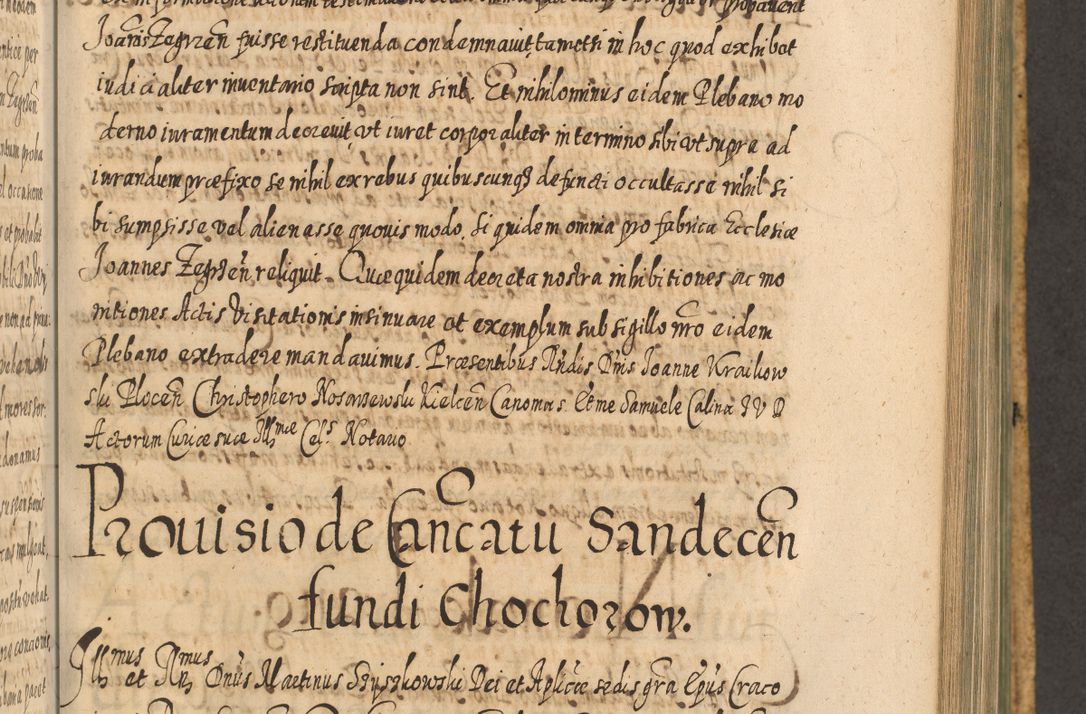 Joānis Zegrzen̄ fuisse restituenda condemnauit tametsi in hoc quod exhibet
iudicialiter inuentario scripta non sint. Et nihilominus eidem Plebano mo
derno iuramentum decreuit, vt iuret corporaliter in termino sibi vt supra ad
iurandum præfixo se nihil ex rebus quibuscunq3 defuncti occultasse nihil si
bi sumpsisse vel alienasse quouis modo, si quidem omnia pro fabrica Ecclesiæ
Joannes Zegrzen̄ reliquit. Quæ quidem decreta nostra inhibitiones ac mo
nitiones Actis Visitationis insinuare et exemplum sub sigillo nr̄o eidem
Plebano extradere mandauimus. Præsentibus Rn̄dis Dn̄is Joanne Kraikow
ski Plocen̄ Christophero Kielcen̄ Canonicis Et me Samuele Calina J V D
Actorum Curiæ suæ Jll^mæ Cel^s Notario
Prouisio de Can̄catu Sandecen̄
fundi Chochorow.
Jll^mus et R^mus Dn̄us Martinus Szyszkowski Dei et Aplicæ sedis gr̄a Ep̄us Craco